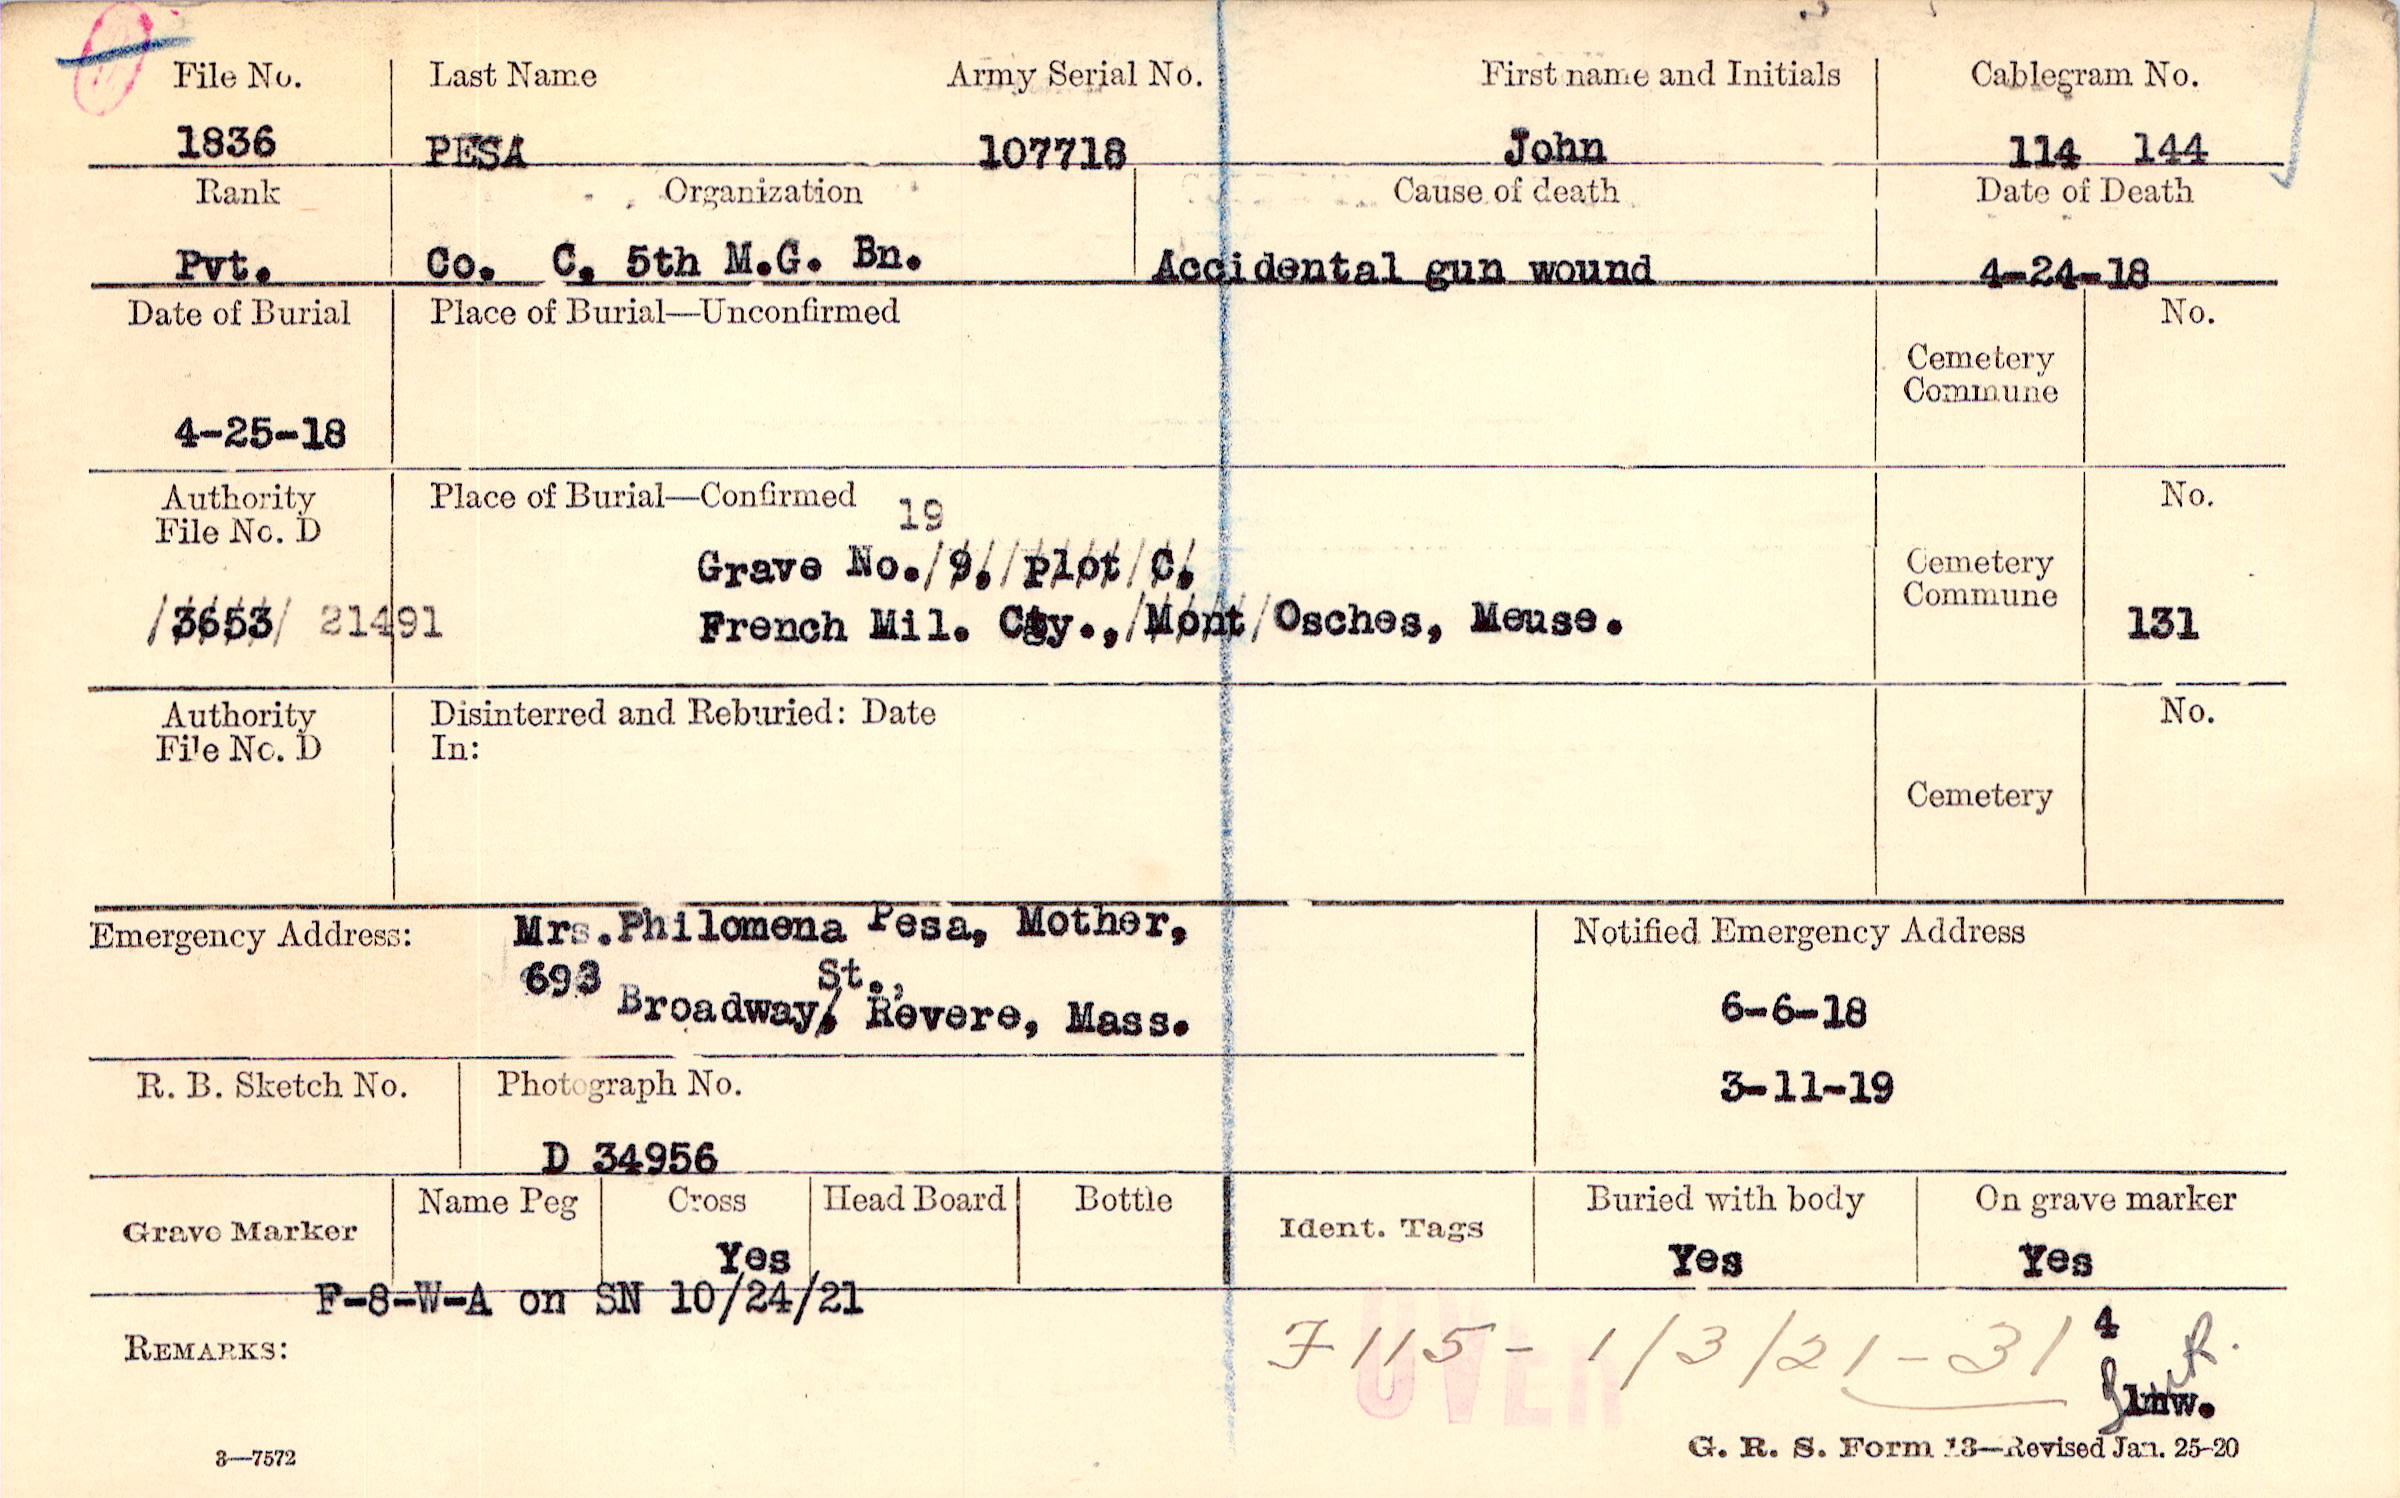 File No. Last Name Army Serial No. First name and Initials Cablegram No.
1836 PESA 107718 John 114 144
Rank Organization Cause of death Date of Death
Pvt. Co. C, 5th M.G. Bn. Accidental gun wound 4-24-18
Date of Burial Place of Burial—Unconfirmed No.
Cemetery
Commune
4-25-18
Authority Place of Burial—Confirmed No.
File No. D
19
Grave No./9,/plot/C,
Cemetery
Commune
/3653/ 21491 French Mil. Cty.,/Mont/Osches, Meuse. 131
Authority Disinterred and Reburied: Date No.
File No. D In:
Cemetery
Emergency Address: Mrs.Philomena Pesa, Mother, Notified Emergency Address
693 St.,
Broadway, Revere, Mass. 6-6-18
R. B. Sketch No. Photograph No. 3-11-19
D 34956
Grave Marker Name Peg Cross Head Board Bottle Ident. Tags Buried with body On grave marker
Yes Yes Yes
F-8-W-A on SN 10/24/21
REMARKS: F115 - 1/3/21 - 31 4
OVER
lmw.
3—7572 G. R. S. Form 13—Revised Jan. 25-20